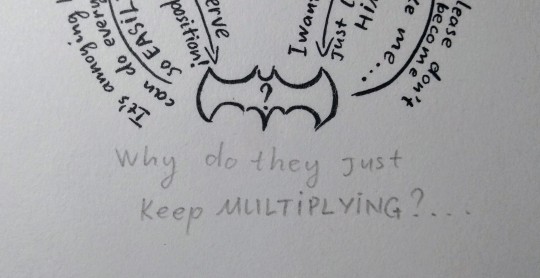 It's annoying
can do every
so EASIL
serve
position!
I wan
Just
Hi
lease don't
become
ke me...
?
Why do they just
keep MULTIPLYING?...